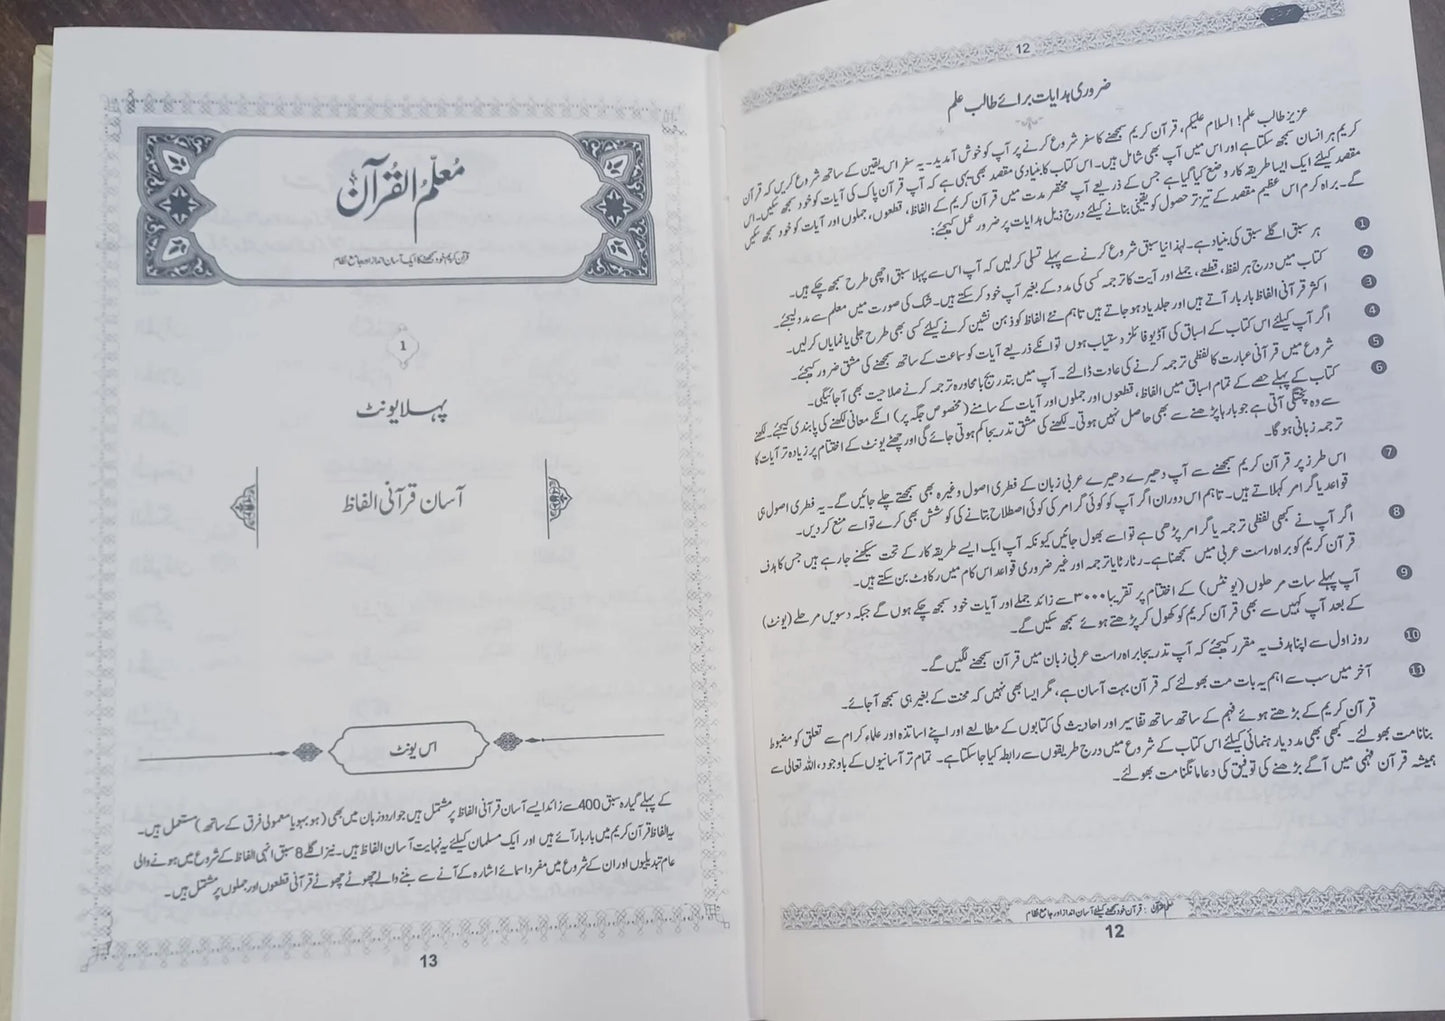 12
ضروری ہدایات برائے طالب علم
عزیز طالب علم! السلام علیکم، قرآن کریم سمجھنے کا سفر شروع کرنے پر آپ کو خوش آمدید۔ یہ سفر اس یقین کے ساتھ شروع کریں کہ قرآن
کریم ہر انسان سمجھ سکتا ہے اور اس میں آپ بھی شامل ہیں۔ اس کتاب کا بنیادی مقصد بھی یہی ہے کہ آپ قرآن پاک کی آیات کو خود سمجھ سکیں۔ اس
مقصد کیلئے ایک ایسا طریقہ کار وضع کیا گیا ہے جس کے ذریعے آپ مختصر مدت میں قرآن کریم کے الفاظ، قطعوں، جملوں اور آیات کو خود سمجھ سکیں
گے۔ براہ کرم اس عظیم مقصد کے تیز تر حصول کو یقینی بنانے کیلئے درج ذیل ہدایات پر ضرور عمل کیجئے:
1 ہر سبق اگلے سبق کی بنیاد ہے۔ لہذا نیا سبق شروع کرنے سے پہلے تسلی کر لیں کہ آپ اس سے پہلا سبق اچھی طرح سمجھ چکے ہیں۔
2 کتاب میں درج ہر لفظ، قطعے، جملے اور آیت کا ترجمہ کسی کی مدد کے بغیر آپ خود کر سکتے ہیں۔ شک کی صورت میں معلم سے مدد لیجئے۔
3 اکثر قرآنی الفاظ بار بار آتے ہیں اور جلد یاد ہو جاتے ہیں تاہم نئے الفاظ کو ذہن نشین کرنے کیلئے کسی بھی طرح جلی یا نمایاں کر لیں۔
4 اگر آپ کیلئے اس کتاب کے اسباق کی آڈیو فائلز دستیاب ہوں تو انکے ذریعے آیات کو سماعت کے ساتھ سمجھنے کی مشق ضرور کیجئے۔
5 شروع میں قرآنی عبارت کا لفظی ترجمہ کرنے کی عادت ڈالئے۔ آپ میں بتدریج با محاورہ ترجمہ کرنے صلاحیت بھی آجائیگی۔
6 کتاب کے پہلے حصے کے تمام اسباق میں الفاظ، قطعوں اور جملوں اور آیات کے سامنے (مخصوص جگہ پر) انکے معانی لکھنے کی پابندی کیجئے۔ لکھنے
سے وہ پختگی آتی ہے جو بارہا پڑھنے سے بھی حاصل نہیں ہوتی۔ لکھنے کی مشق تدریجا کم ہوتی جائے گی اور چھٹے یونٹ کے اختتام پر زیادہ تر آیات کا
ترجمہ زبانی ہو گا۔
7 اس طرز پر قرآن کریم سمجھنے سے آپ دھیرے دھیرے عربی زبان کے فطری اصول وغیرہ بھی سمجھتے چلے جائیں گے۔ یہ فطری اصول ہی
قواعد یا گرامر کہلاتے ہیں۔ تاہم اس دوران اگر آپ کو کوئی گرامر کی کوئی اصطلاح بتانے کی کوشش بھی کرے تو اسے منع کر دیں۔
8 اگر آپ نے کبھی لفظی ترجمہ یا گرامر پڑھی ہے تو اسے بھول جائیں کیونکہ آپ ایک ایسے طریقہ کار کے تحت سیکھنے جا رہے ہیں جس کا ہدف
قرآن کریم کو براہ راست عربی میں سمجھنا ہے۔ رٹا رٹایا ترجمہ اور غیر ضروری قواعد اس کام میں رکاوٹ بن سکتے ہیں۔
9 آپ پہلے سات مرحلوں (یونٹس) کے اختتام پر تقریبا ۳۰۰۰ سے زائد جملے اور آیات خود سمجھ چکے ہوں گے جبکہ دسویں مرحلے (یونٹ)
کے بعد آپ کہیں سے بھی قرآن کریم کو کھول کر پڑھتے ہوئے سمجھ سکیں گے۔
10 روز اول سے اپنا ہدف یہ مقرر کیجئے کہ آپ تدریجا براہ راست عربی زبان میں قرآن سمجھنے لگیں گے۔
11 آخر میں سب سے اہم یہ بات مت بھولئے کہ قرآن بہت آسان ہے، مگر ایسا بھی نہیں کہ محنت کے بغیر ہی سمجھ آجائے۔
قرآن کریم کے بڑھتے ہوئے فہم کے ساتھ ساتھ تفاسیر اور احادیث کی کتابوں کے مطالعے اور اپنے اساتذہ اور علماء کرام سے تعلق کو مضبوط
بنانا مت بھولئے۔ کبھی بھی مدد یا رہنمائی کیلئے اس کتاب کے شروع میں درج طریقوں سے رابطہ کیا جا سکتا ہے۔ تمام تر آسانیوں کے باوجود، اللہ تعالی سے
ہمیشہ قرآن فہمی میں آگے بڑھنے کی توفیق کی دعا مانگنا مت بھولئے۔
معلم القرآن : قرآن خود سمجھنے کیلئے آسان انداز اور جامع نظام
12
معلّم القرآن
قرآن کریم خود سمجھنے کا ایک آسان انداز اور جامع نظام
1
پہلا یونٹ
آسان قرآنی الفاظ
اس یونٹ
کے پہلے گیارہ سبق 400 سے زائد ایسے آسان قرآنی الفاظ پر مشتمل ہیں جو اردو زبان میں بھی (ہو بہو یا معمولی فرق کے ساتھ) مستعمل ہیں۔
یہ الفاظ قرآن کریم میں بار بار آئے ہیں اور ایک مسلمان کیلئے یہ نہایت آسان الفاظ ہیں۔ نیز اگلے 8 سبق انہی الفاظ کے شروع میں ہونے والی
عام تبدیلیوں اور ان کے شروع میں مفرد اسمائے اشارہ کے آنے سے بننے والے چھوٹے چھوٹے قرآنی قطعوں اور جملوں پر مشتمل ہیں۔
13